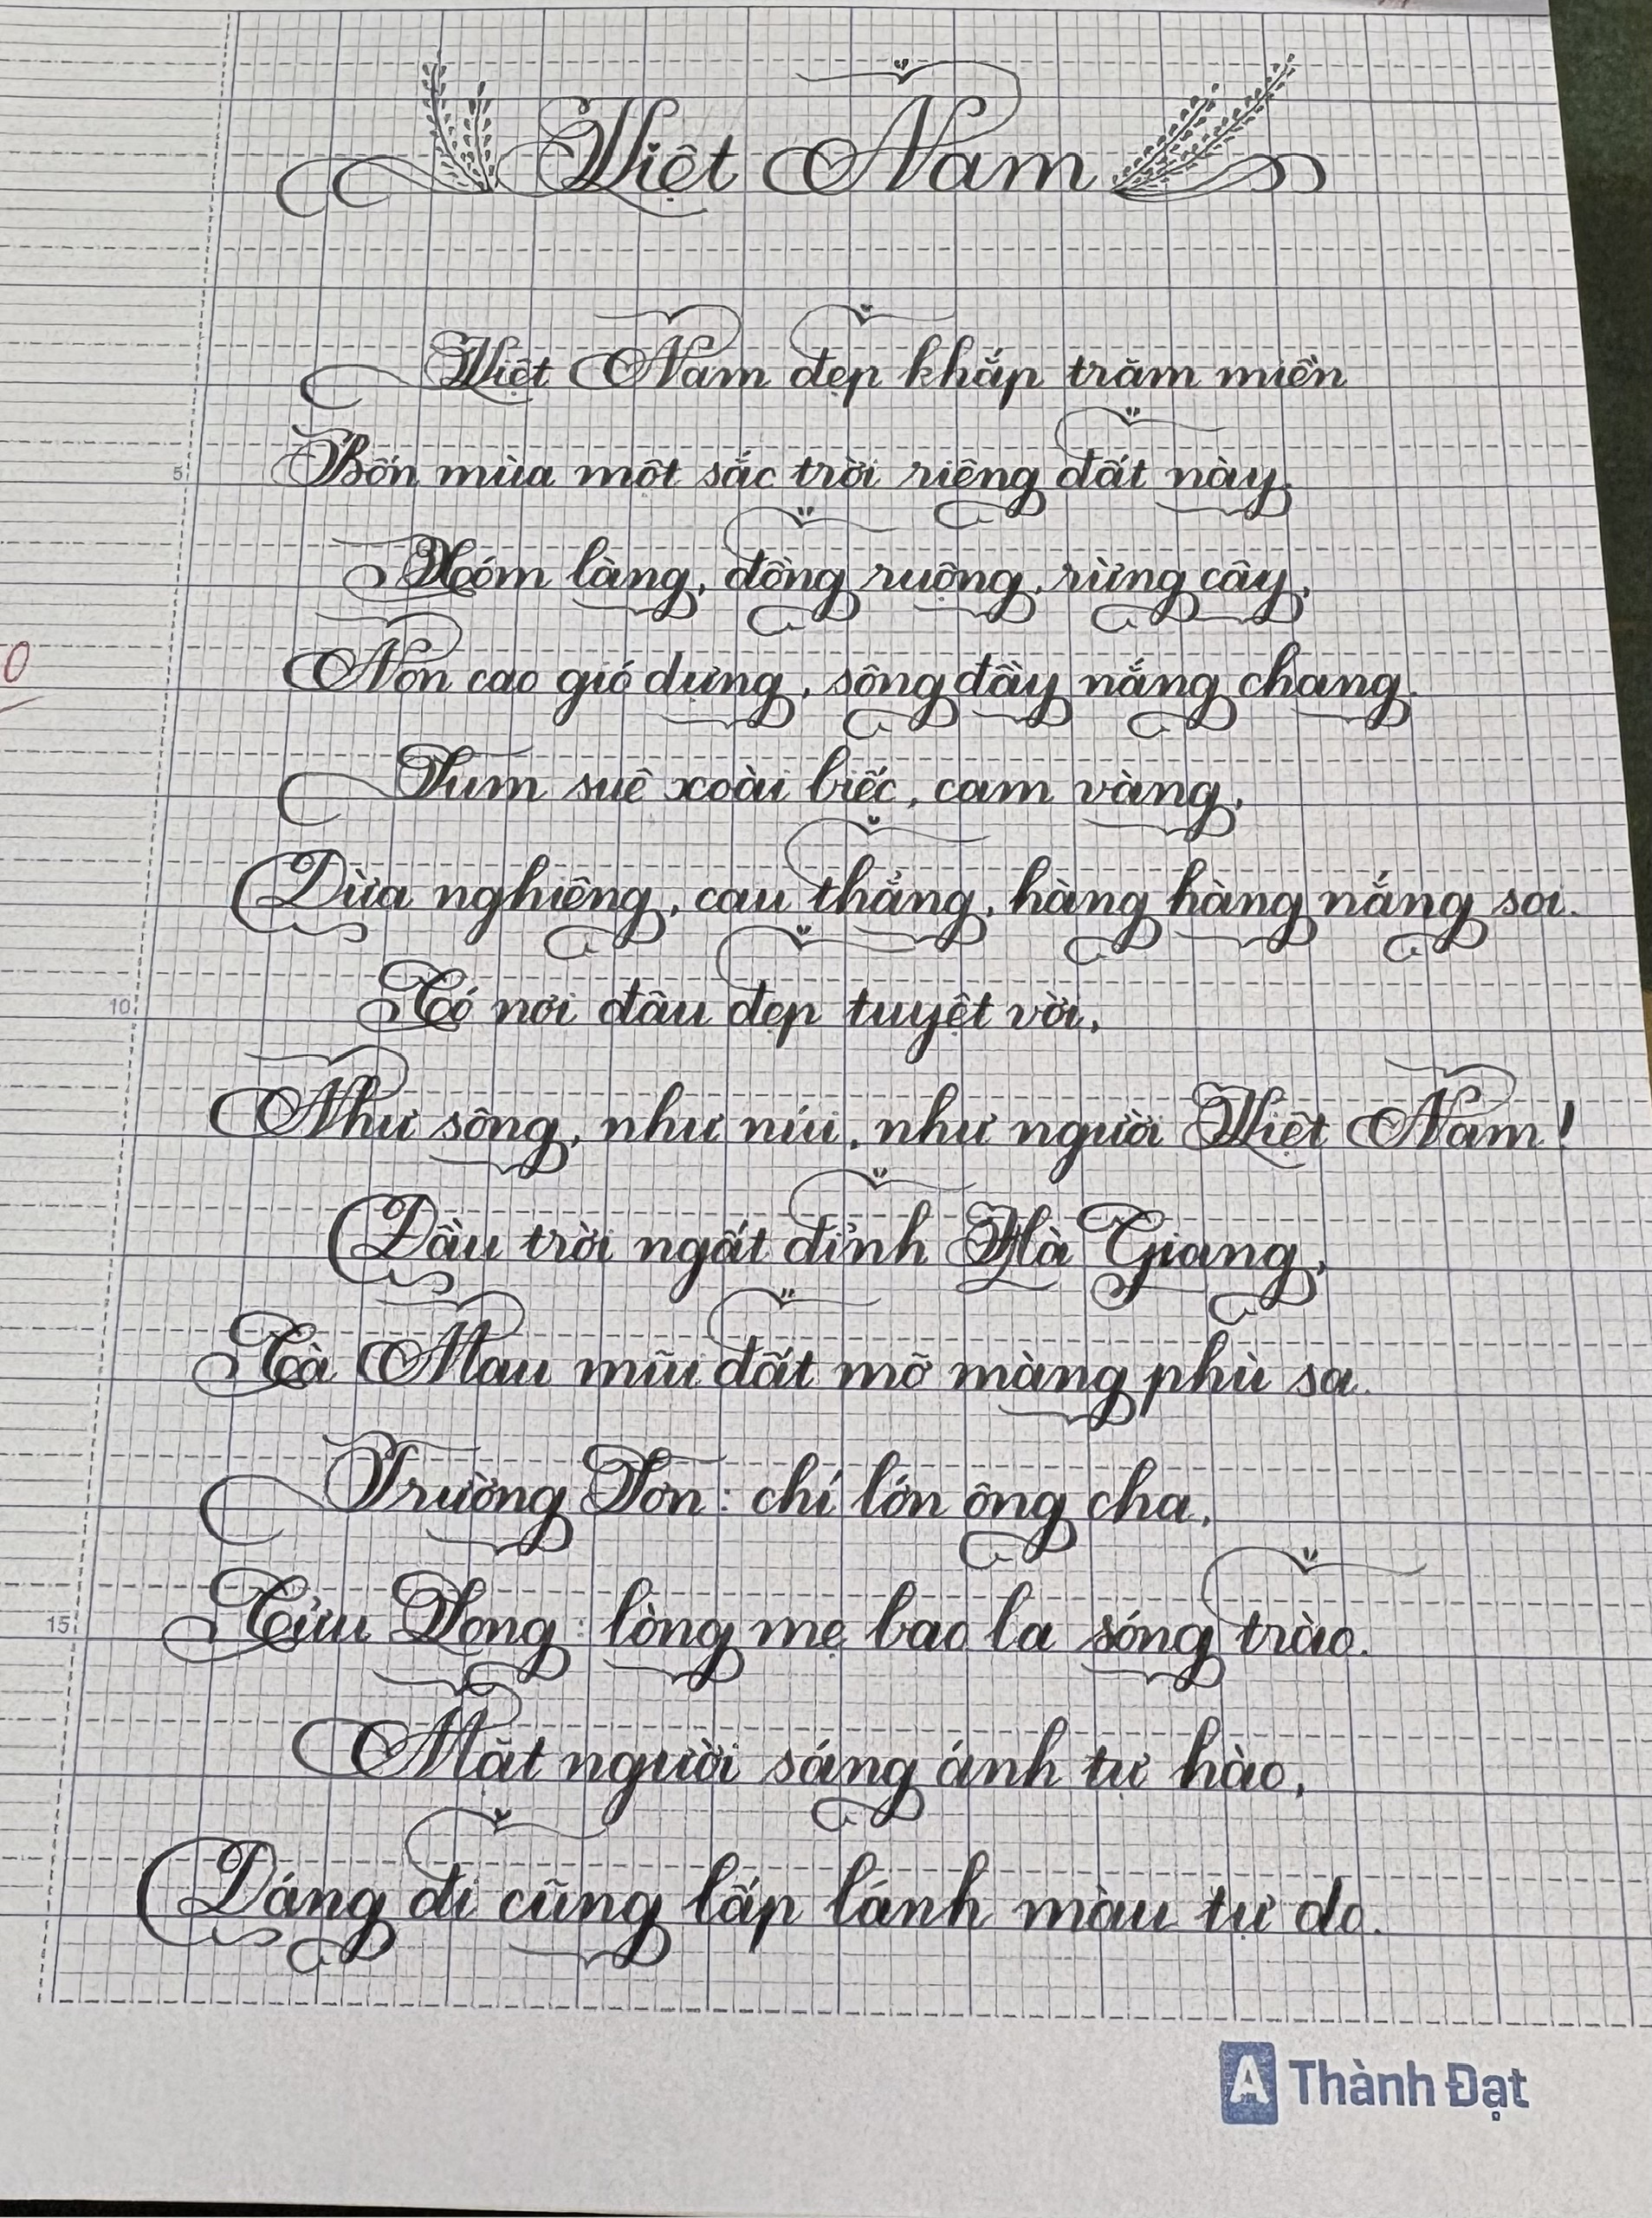 Việt Nam
Việt Nam đẹp khắp trăm miền
Bốn mùa một sắc trời riêng đất này.
Xóm làng, đồng ruộng, rừng cây,
Non cao gió dựng, sông đầy nắng chang.
Sum suê xoài biếc, cam vàng,
Dừa nghiêng, cau thẳng, hàng hàng nắng soi.
Có nơi đâu đẹp tuyệt vời,
Như sông, như núi, như người Việt Nam!
Đầu trời ngất đỉnh Hà Giang,
Cà Mau mũi đất mỡ màng phù sa.
Trường Sơn: chí lớn ông cha,
Cửu Long: lòng mẹ bao la sóng trào.
Mặt người sáng ánh tự hào,
Dáng đi cũng lấp lánh màu tự do.
5
10
15
0
A Thành Đạt